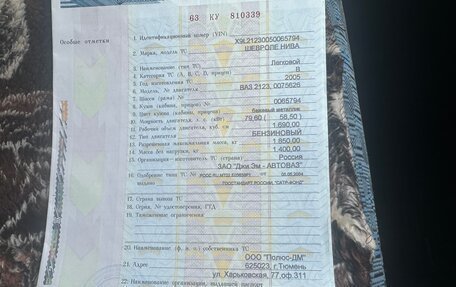 63 КУ 810339
Особые отметки
1. Идентификационный номер (VIN) X9L21230050065794
2. Марка, модель ТС ШЕВРОЛЕ НИВА
3. Наименование (тип ТС) Легковой
4. Категория ТС (А, В, С, D, прицеп) В
5. Год изготовления ТС 2005
6. Модель, № двигателя ВАЗ 2123, 0075626
7. Шасси (рама) №
8. Кузов (кабина, прицеп) № 0065794
9. Цвет кузова (кабины, прицепа) бежевый металлик
10. Мощность двигателя, л. с. (кВт) 79,60 ( 58,50 )
11. Рабочий объем двигателя, куб. см 1 690,00
12. Тип двигателя БЕНЗИНОВЫЙ
13. Разрешенная максимальная масса, кг 1 850,00
14. Масса без нагрузки, кг 1 400,00
15. Организация - изготовитель ТС (страна) Россия
ЗАО "Джи Эм - АВТОВАЗ"
16. Одобрение типа ТС №
выдано ГОССТАНДАРТ РОССИИ, "САТР-ФОНД"
17. Страна вывоза ТС
18. Серия, № удостоверения, ГТД
19. Таможенные ограничения
20. Наименование (ф. и. о.) собственника ТС
ООО "Полюс-ДМ"
21. Адрес 625023, г.Тюмень
ул. Харьковская, 77,оф.311
22. Наименование организации, выдавшей паспорт